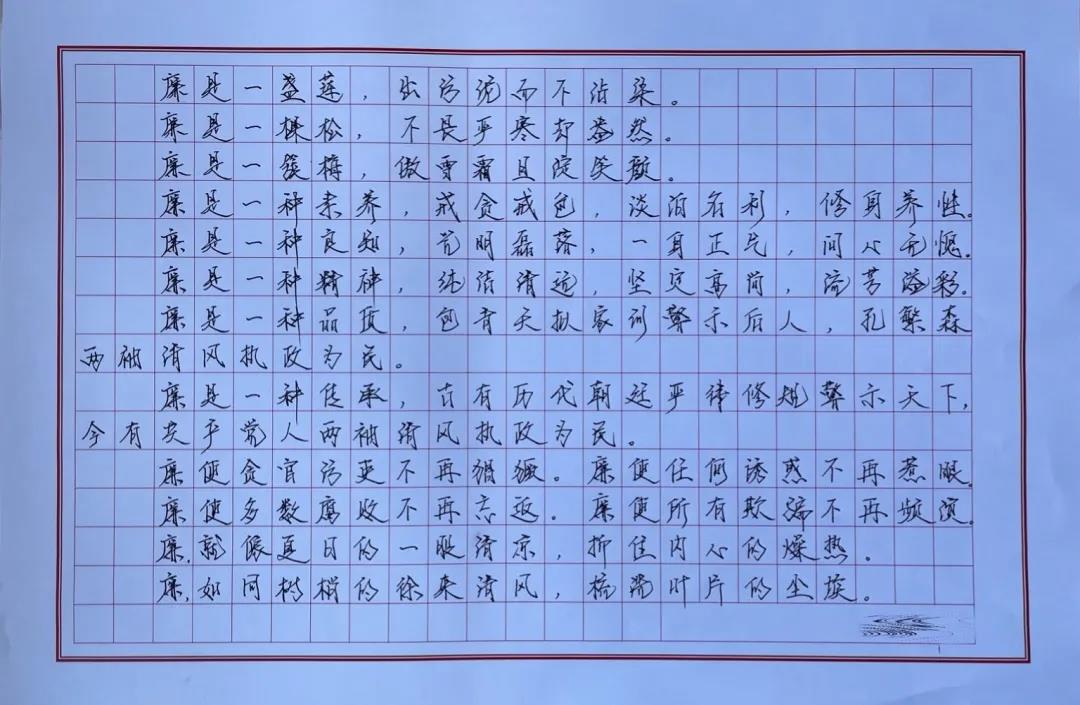 廉是一盏莲，出污泥而不沾染。
廉是一棵松，不畏严寒却盎然。
廉是一簇梅，傲雪霜且绽笑颜。
廉是一种素养，戒贪戒色，淡泊名利，修身养性。
廉是一种良知，光明磊落，一身正气，问心无愧。
廉是一种精神，纯洁清远，坚定高尚，流芳溢彩。
廉是一种品质，包青天拟家训警示后人，孔繁森
两袖清风执政为民。
廉是一种传承，古有历代朝廷严律修规警示天下，
今有共产党人两袖清风执政为民。
廉使贪官污吏不再猖獗。廉使任何诱惑不再惹眼。
廉使多数腐败不再忘返。廉使所有欺骗不再频演。
廉，就像夏日的一股清凉，抑住内心的燥热。
廉，如同树梢的徐来清风，梳荡叶片的尘埃。